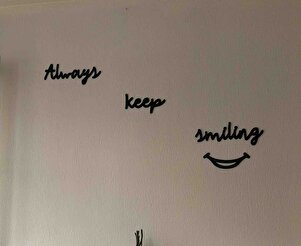 Always
keep
smiling